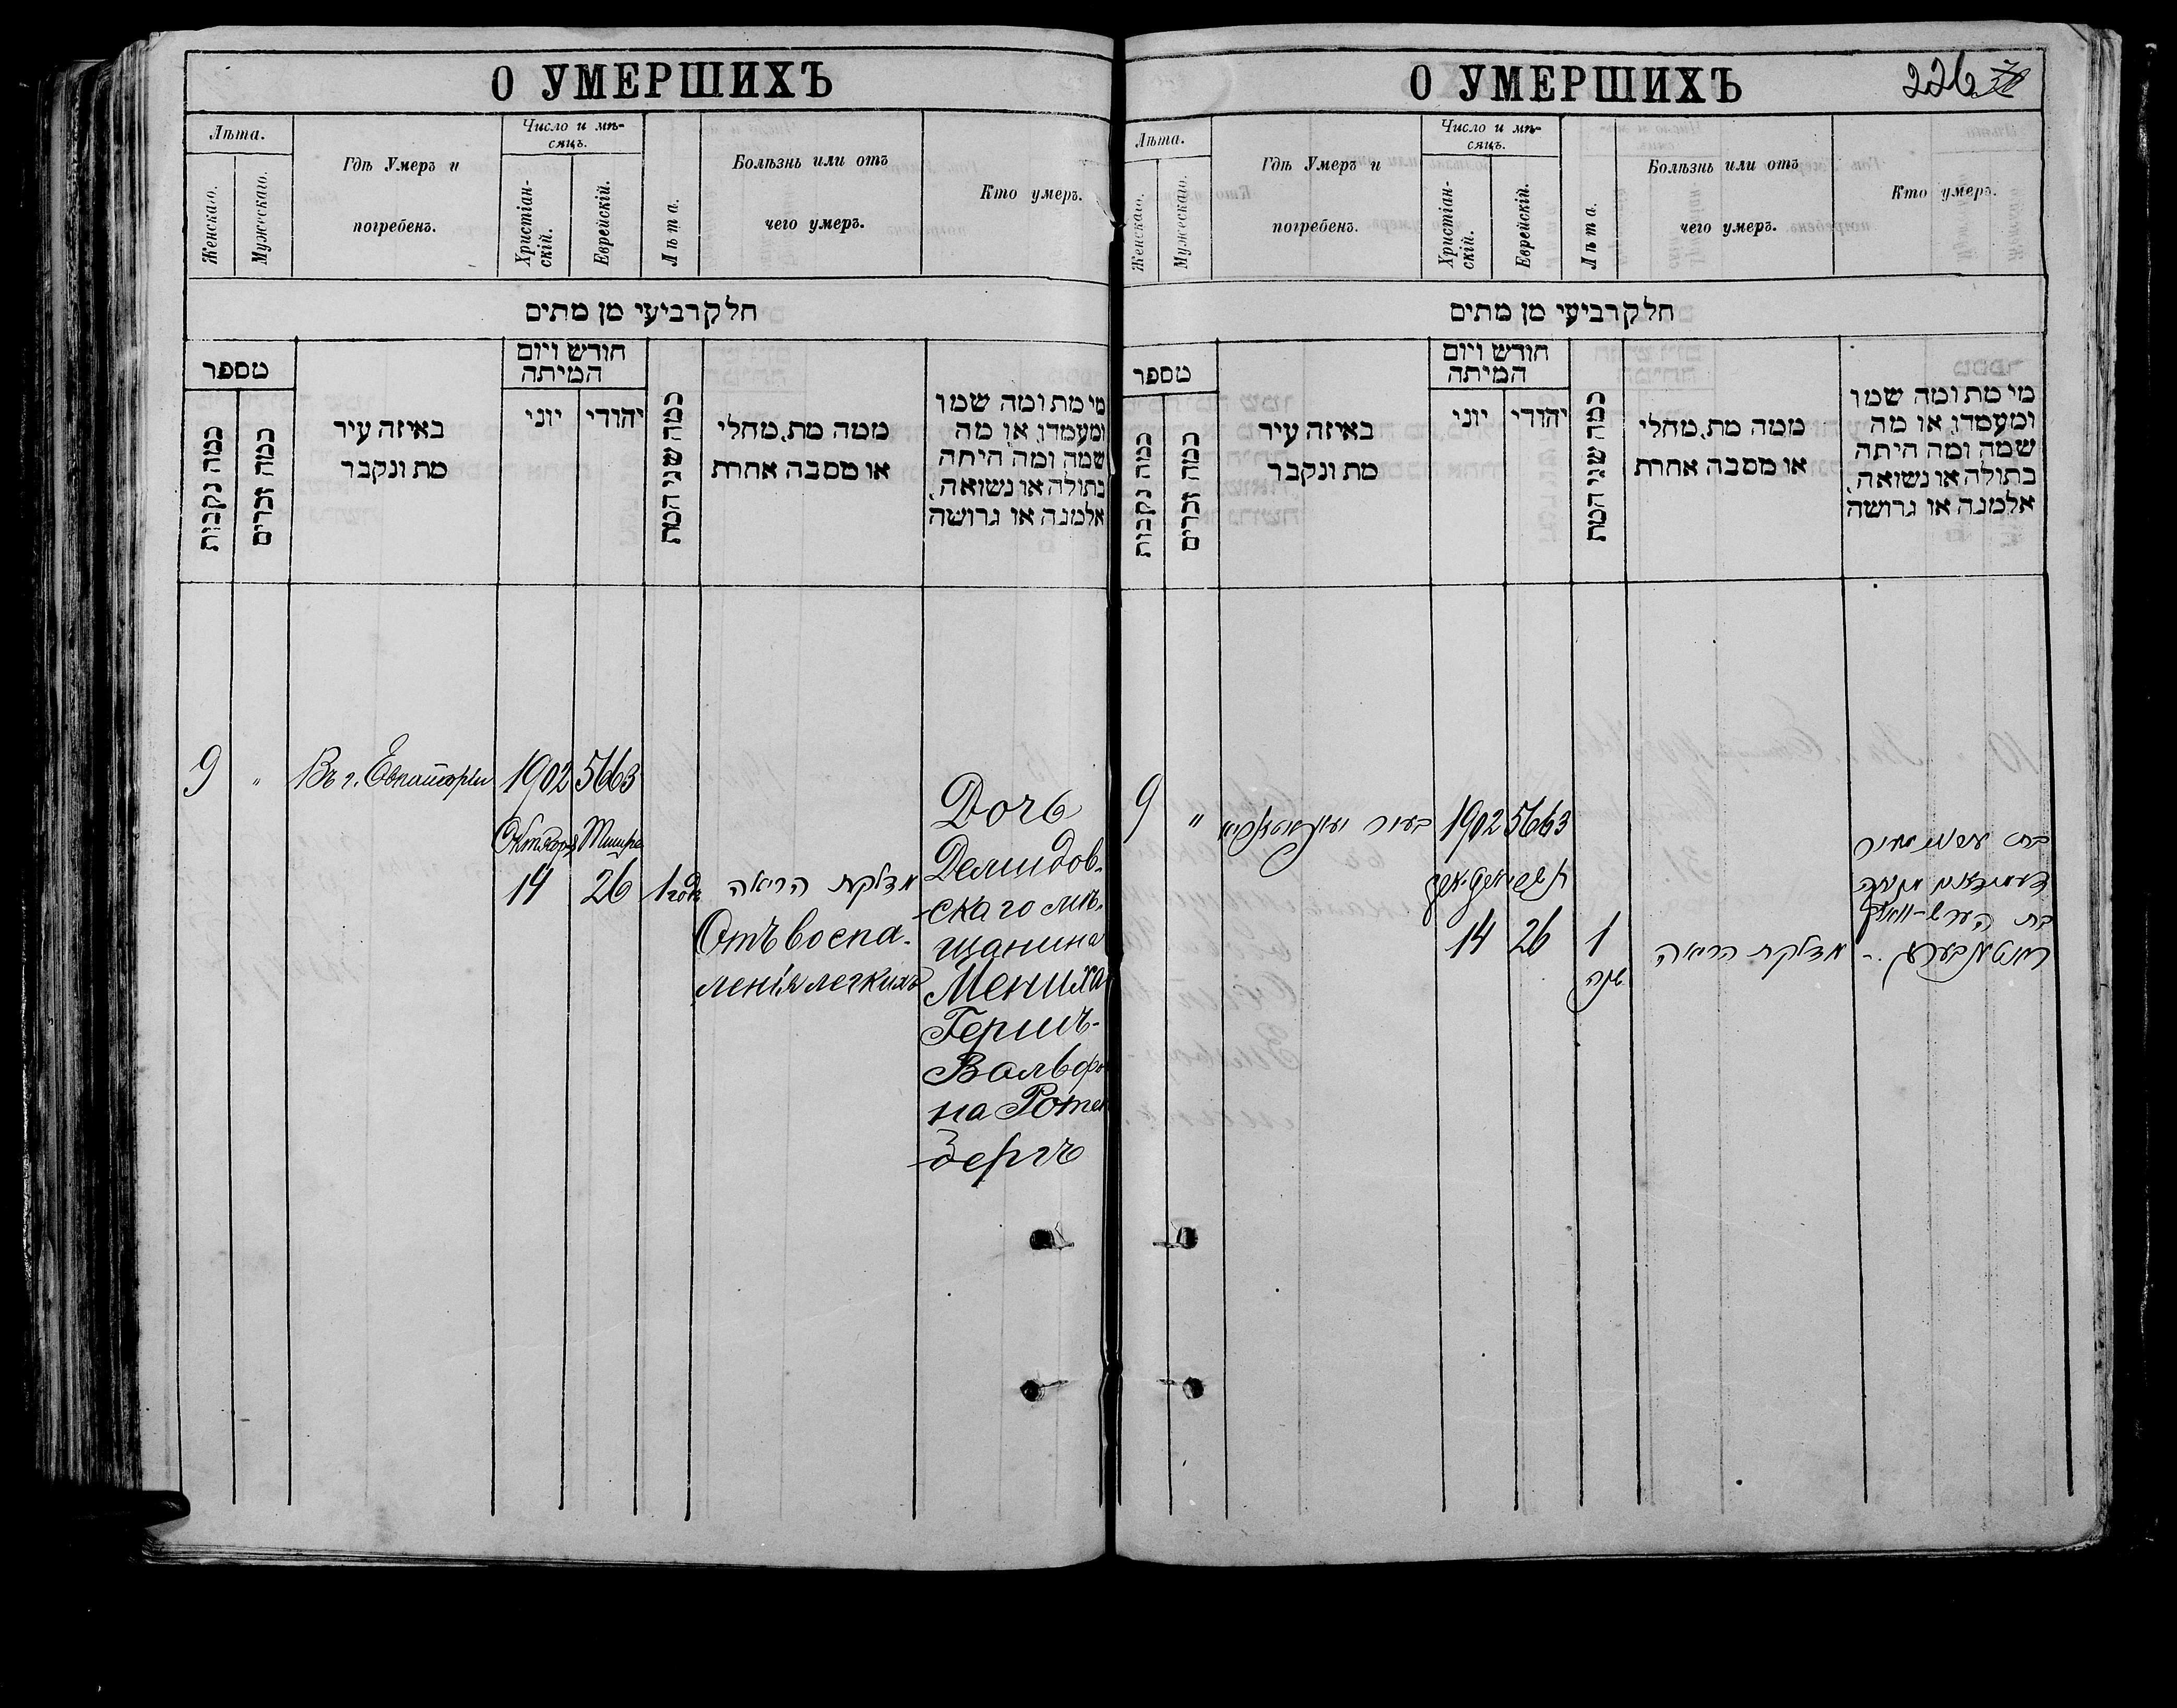 О УМЕРШИХЪ
Лѣта.
Женскаго.
Мужескаго.
Гдѣ Умеръ и
погребенъ.
Число и мѣ-
сяцъ.
Христіан-
скій.
Еврейскій.
Лѣта.
Болѣзнь или отъ
чего умеръ.
Кто умеръ.
חלק רביעי מן מתים
מספר
כמה נקבות
כמה זכרים
באיזה עיר
מת ונקבר
חודש ויום
המיתה
יוני
יהודי
כמה שני המת
ממה מת, מחלי
או מסבה אחרת
מי מת ומה שמו
ומעמדו, או מה
שמה ומה היתה
בתולה או נשואה,
אלמנה או גרושה
9 " Въ г. Евпаторіи 1902 5663
Октября Тишри
14 26 1 годъ
מדלקת הריאה
Отъ воспа-
ленія легкихъ
Дочь
Демидов-
скаго мѣ-
щанина
Мениха
Гершъ-
Вольфо
на Ротен
бергъ
О УМЕРШИХЪ
226
Лѣта.
Женскаго.
Мужескаго.
Гдѣ Умеръ и
погребенъ.
Число и мѣ-
сяцъ.
Христіан-
скій.
Еврейскій.
Лѣта.
Болѣзнь или отъ
чего умеръ.
Кто умеръ.
חלק רביעי מן מתים
מספר
כמה נקבות
כמה זכרים
באיזה עיר
מת ונקבר
חודש ויום
המיתה
יוני
יהודי
כמה שני המת
ממה מת, מחלי
או מסבה אחרת
מי מת ומה שמו
ומעמדו, או מה
שמה ומה היתה
בתולה או נשואה,
אלמנה או גרושה
9 " בעיר 1902 5663
14 26 1
שנה
מדלקת הריאה
בת
בת הערש-וואלף
ראטענבערג